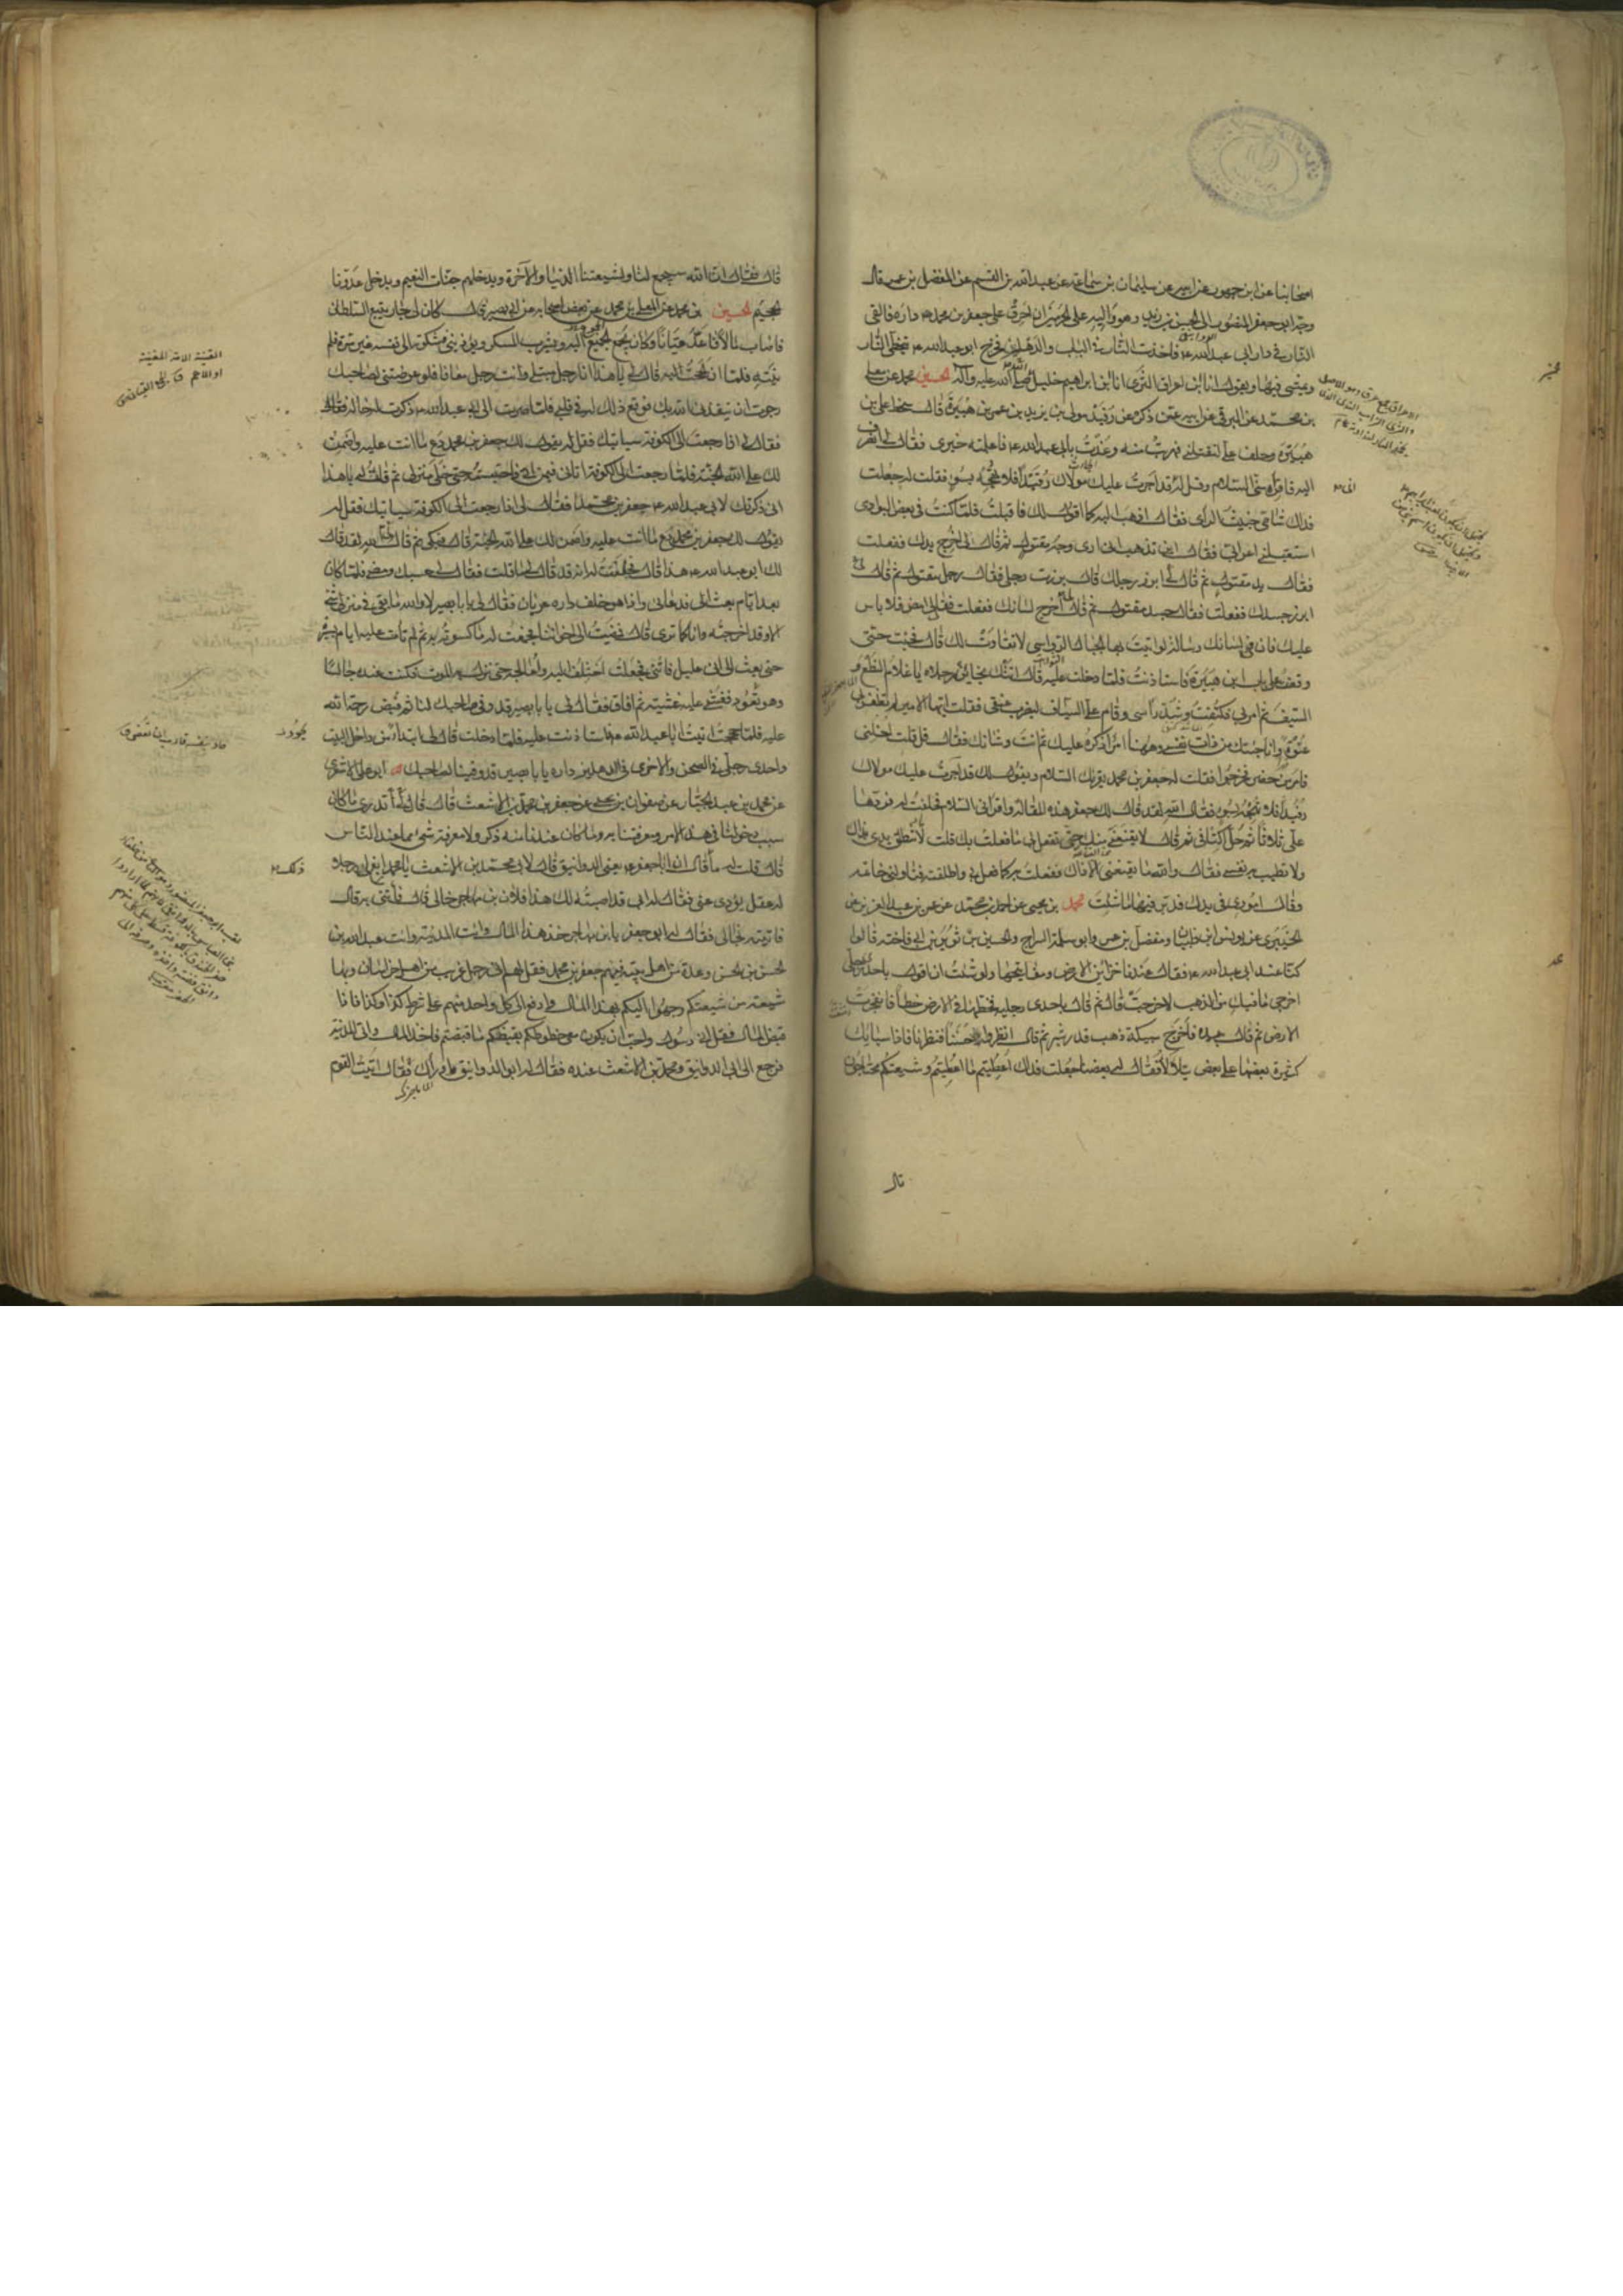 اصحابنا عن ابن جمهور عن ابيه عن سليمان بن سماعة عن عبد الله بن القسم عن المفضل بن عمر قال
وجه ابو جعفر المنصور الى الحسن بن زيد وهو واليه على الحرمين ان احرق على جعفر بن محمد داره فالقى
النار في دار ابي عبد الله فاخذت النار في الباب والدهليز فخرج ابو عبد الله يتخطى النار
ويمشي فيها ويقول انا ابن اعراق الثرى انا ابن ابراهيم خليل الله صلى الله عليه وآله الحسين بن محمد عن معلى
بن محمد عن البرقي عن ابيه عمن ذكره عن رفيد مولى يزيد بن عمر بن هبيرة قال سخط علي ابن
هبيرة وحلف علي ليقتلني فهربت منه وعذت بابي عبد الله فاعلمته خبري فقال لي انصرف
اليه فاقرأه مني السلام وقل له قد اجرت عليك مولاك رفيدا فلا تهجه بسوء فقلت له جعلت
فداك شامي خبيث الرأي فقال اذهب اليه كما اقول لك فاقبلت فلما كنت في بعض البوادي
استقبلني اعرابي فقال اين تذهب اني ارى وجه مقتول ثم قال لي اخرج يدك ففعلت
فقال يد مقتول ثم قال لي ابرز رجلك فابرزت رجلي فقال رجل مقتول ثم قال لي
ابرز جسدك ففعلت فقال جسد مقتول ثم قال لي اخرج لسانك ففعلت فقال لي امض فلا باس
عليك فان في لسانك رسالة لو اتيت بها الجبال الرواسي لانقادت لك قال فجئت حتى
وقفت على باب ابن هبيرة فاستاذنت فلما دخلت عليه قال اتتك بخائن رجلاه يا غلام النطع و
السيف ثم امر بي فكتفت وشد رأسي وقام علي السياف ليضرب عنقي فقلت ايها الامير لم تظفر بي
عنوة وانما جئتك من ذات نفسي وههنا امر اذكره لك ثم انت وشانك فقال قل فقلت اخلني
فامر من حضر فخرجوا فقلت له جعفر بن محمد يقرئك السلام ويقول لك قد اجرت عليك مولاك
رفيدا فلا تهجه بسوء فقال الله لقد قال لك جعفر هذه المقالة واقرأني السلام فحلفت له فردها
علي ثلاثا ثم حل اكتافي ثم قال لا يقنعني منك حتى تفعل بي ما فعلت بك قلت لا تنطلق يدي بذاك
ولا تطيب به نفسي فقال والله ما يقنعني الا ذاك ففعلت به كما فعل بي واطلقته فناولني خاتمه
وقال اموري في يدك فدبر فيها ما شئت محمد بن يحيى عن احمد بن محمد عن عمر بن عبد العزيز عن
الخيبري عن يونس بن ظبيان ومفضل بن عمر وابو سلمة السراج والحسين بن ثوير بن ابي فاخته قالوا
كنا عند ابي عبد الله فقال عندنا خزائن الارض ومفاتيحها ولو شئت ان اقول باحدى رجلي
اخرجي ما فيك من الذهب لاخرجت قال ثم قال باحدى رجليه فخطها في الارض خطا فانفجرت
الارض ثم قال بيده فاخرج سبيكة ذهب قدر شبر ثم قال انظروا حسنا فنظرنا فاذا سبائك
كثيرة بعضها على بعض يتلألأ فقال له بعضنا جعلت فداك اعطيتم ما اعطيتم وشيعتكم محتاجون
قال
قال فقال ان الله سيجمع لنا ولشيعتنا الدنيا والآخرة ويدخلهم جنات النعيم ويدخل عدونا
الجحيم الحسين بن محمد عن المعلى بن محمد عن بعض اصحابه عن ابي بصير قال كان لي جار يتبع السلطان
فاصاب مالا فاعد قيانا وكان يجمع الجميع اليه ويشرب المسكر ويؤذيني فشكوته الى نفسه غير مرة فلم
ينته فلما ان الححت عليه قال لي يا هذا انا رجل مبتلى وانت رجل معافا فلو عرضتني لصاحبك
رجوت ان ينقذني الله بك فوقع ذلك له في قلبي فلما صرت الى ابي عبد الله ذكرت له حاله فقال لي
فقال لي اذا رجعت الى الكوفة سياتيك فقل له يقول لك جعفر بن محمد دع ما انت عليه واضمن
لك على الله الجنة فلما رجعت الى الكوفة اتاني فيمن اتى فاحتبسته حتى خلا منزلي ثم قلت له يا هذا
اني ذكرتك لابي عبد الله جعفر بن محمد فقال لي اذا رجعت الى الكوفة سياتيك فقل له
يقول لك جعفر بن محمد دع ما انت عليه واضمن لك على الله الجنة قال فبكى ثم قال لي الله لقد قال
لك ابو عبد الله هذا قال فحلفت له انه قد قال لي ما قلت فقال لي حسبك ومضى فلما كان
بعد ايام بعث الي فدعاني واذا هو خلف داره عريان فقال لي يا با بصير لا والله ما بقي في منزلي شيء
الا وقد اخرجته وانا كما ترى قال فمضيت الى اخواننا فجمعت له ما كسوته به ثم لم تات عليه ايام يسيرة
حتى بعث الي اني عليل فاتني فجعلت اختلف اليه واعالجه حتى نزل به الموت فكنت عنده جالسا
وهو يجود بنفسه فغشي عليه غشية ثم افاق فقال لي يا با بصير قد وفى صاحبك لنا ثم قبض رحمة الله
عليه فلما حججت اتيت ابا عبد الله فاستاذنت عليه فلما دخلت قال لي ابتداء من داخل البيت
واحدى رجلي في الصحن والاخرى في دهليز داره يا با بصير قد وفينا لصاحبك ابو علي الاشعري
عن محمد بن عبد الجبار عن صفوان بن يحيى عن جعفر بن محمد بن الاشعث قال قال لي اتدري ما كان
سبب دخولنا في هذا الامر ومعرفتنا به وما كان عندنا منه ذكر ولا معرفة شيء مما عند الناس
قال قلت له ما ذاك قال ان ابا جعفر يعني ابا الدوانيق قال لابي محمد بن الاشعث يا محمد ابغ لي رجلا
له عقل يؤدي عني فقال له ابي قد اصبته لك هذا فلان بن مهاجر خالي قال فأتني به قال
فاتيته بخالي فقال له ابو جعفر يا بن مهاجر خذ هذا المال وات المدينة وات عبد الله بن
الحسن بن الحسن وعدة من اهل بيته فيهم جعفر بن محمد فقل لهم اني رجل غريب من اهل خراسان وبها
شيعة من شيعتكم وجهوا اليكم بهذا المال وادفع الى كل واحد منهم على شرط كذا وكذا فاذا
قبضوا المال فقل اني رسول واحب ان يكون معي خطوطكم بقبضكم ما قبضتم فاخذ المال واتى المدينة
فرجع الى ابي الدوانيق ومحمد بن الاشعث عنده فقال له ابو الدوانيق ما وراك فقال اتيت القوم
القينة الامة المغنية